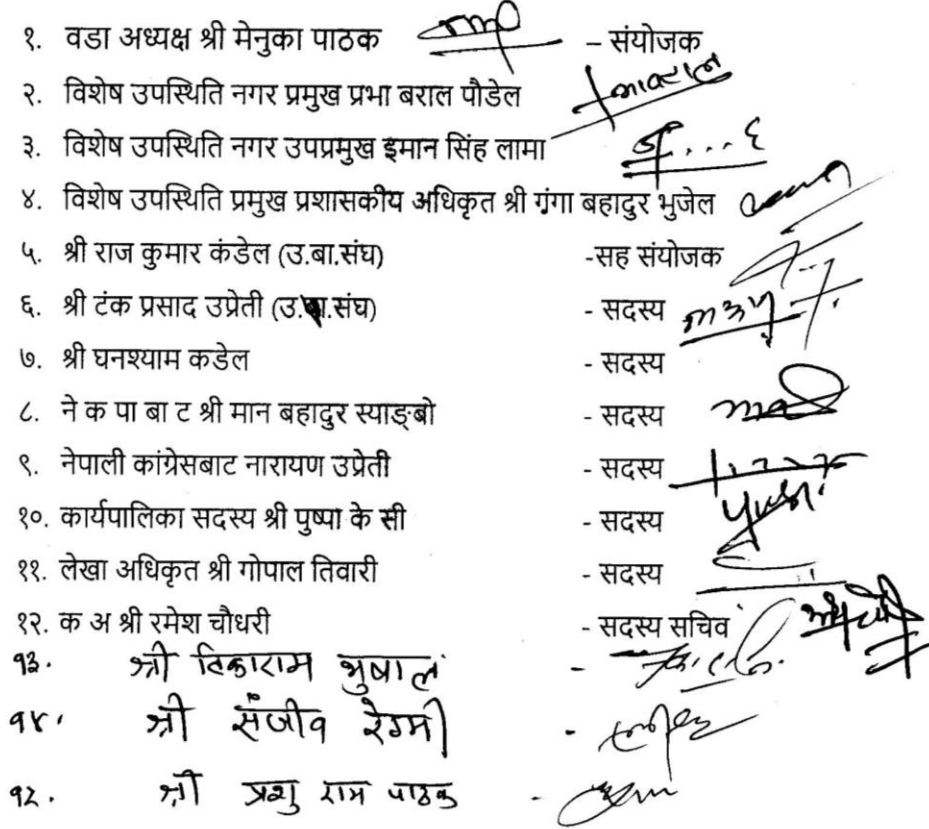 १. वडा अध्यक्ष श्री मेनुका पाठक – संयोजक
२. विशेष उपस्थिति नगर प्रमुख प्रभा बराल पौडेल
३. विशेष उपस्थिति नगर उपप्रमुख इमान सिंह लामा
४. विशेष उपस्थिति प्रमुख प्रशासकीय अधिकृत श्री गंगा बहादुर भुजेल
५. श्री राज कुमार कंडेल (उ.बा.संघ) -सह संयोजक
६. श्री टंक प्रसाद उप्रेती (उ.बा.संघ) - सदस्य
७. श्री घनश्याम कडेल - सदस्य
८. ने क पा बा ट श्री मान बहादुर स्याङ्बो - सदस्य
९. नेपाली कांग्रेसबाट नारायण उप्रेती - सदस्य
१०. कार्यपालिका सदस्य श्री पुष्पा के सी - सदस्य
११. लेखा अधिकृत श्री गोपाल तिवारी - सदस्य
१२. क अ श्री रमेश चौधरी - सदस्य सचिव
१३. श्री टिकाराम भुषाल -
१४. श्री संजीव रेग्मी -
१५. श्री प्रशु राम पाठक -